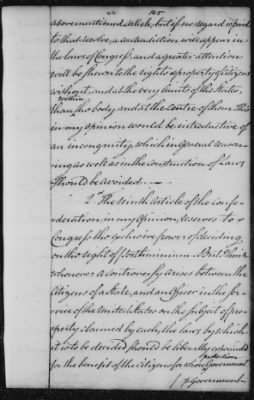 165
abovementioned article, but if no regard is paid
to that resolve, a contradiction will appear in
the laws of Congress, and a greater attention
will be shewn to the rights & property of citizens
without, and at the very limits of the States,
within
than the body and at the centre of them. This
in my opinion would be introductive of
an incongruity, which in general reason-
ing as well as in the construction of Laws
should be avoided.
2d. The Ninth article of the confe-
deration, in my opinion, reserves to
Congress the exclusive power of deciding,
on the right of But I think
whenever a controversy arises between the
Citizens of a State, and an Officer in the ser-
vice of the United States on the subject of pro-
perty claimed by each, the laws by which
it is to be decided should be liberally expounded
protection
for the benefit of the citizens for whose Government
Government